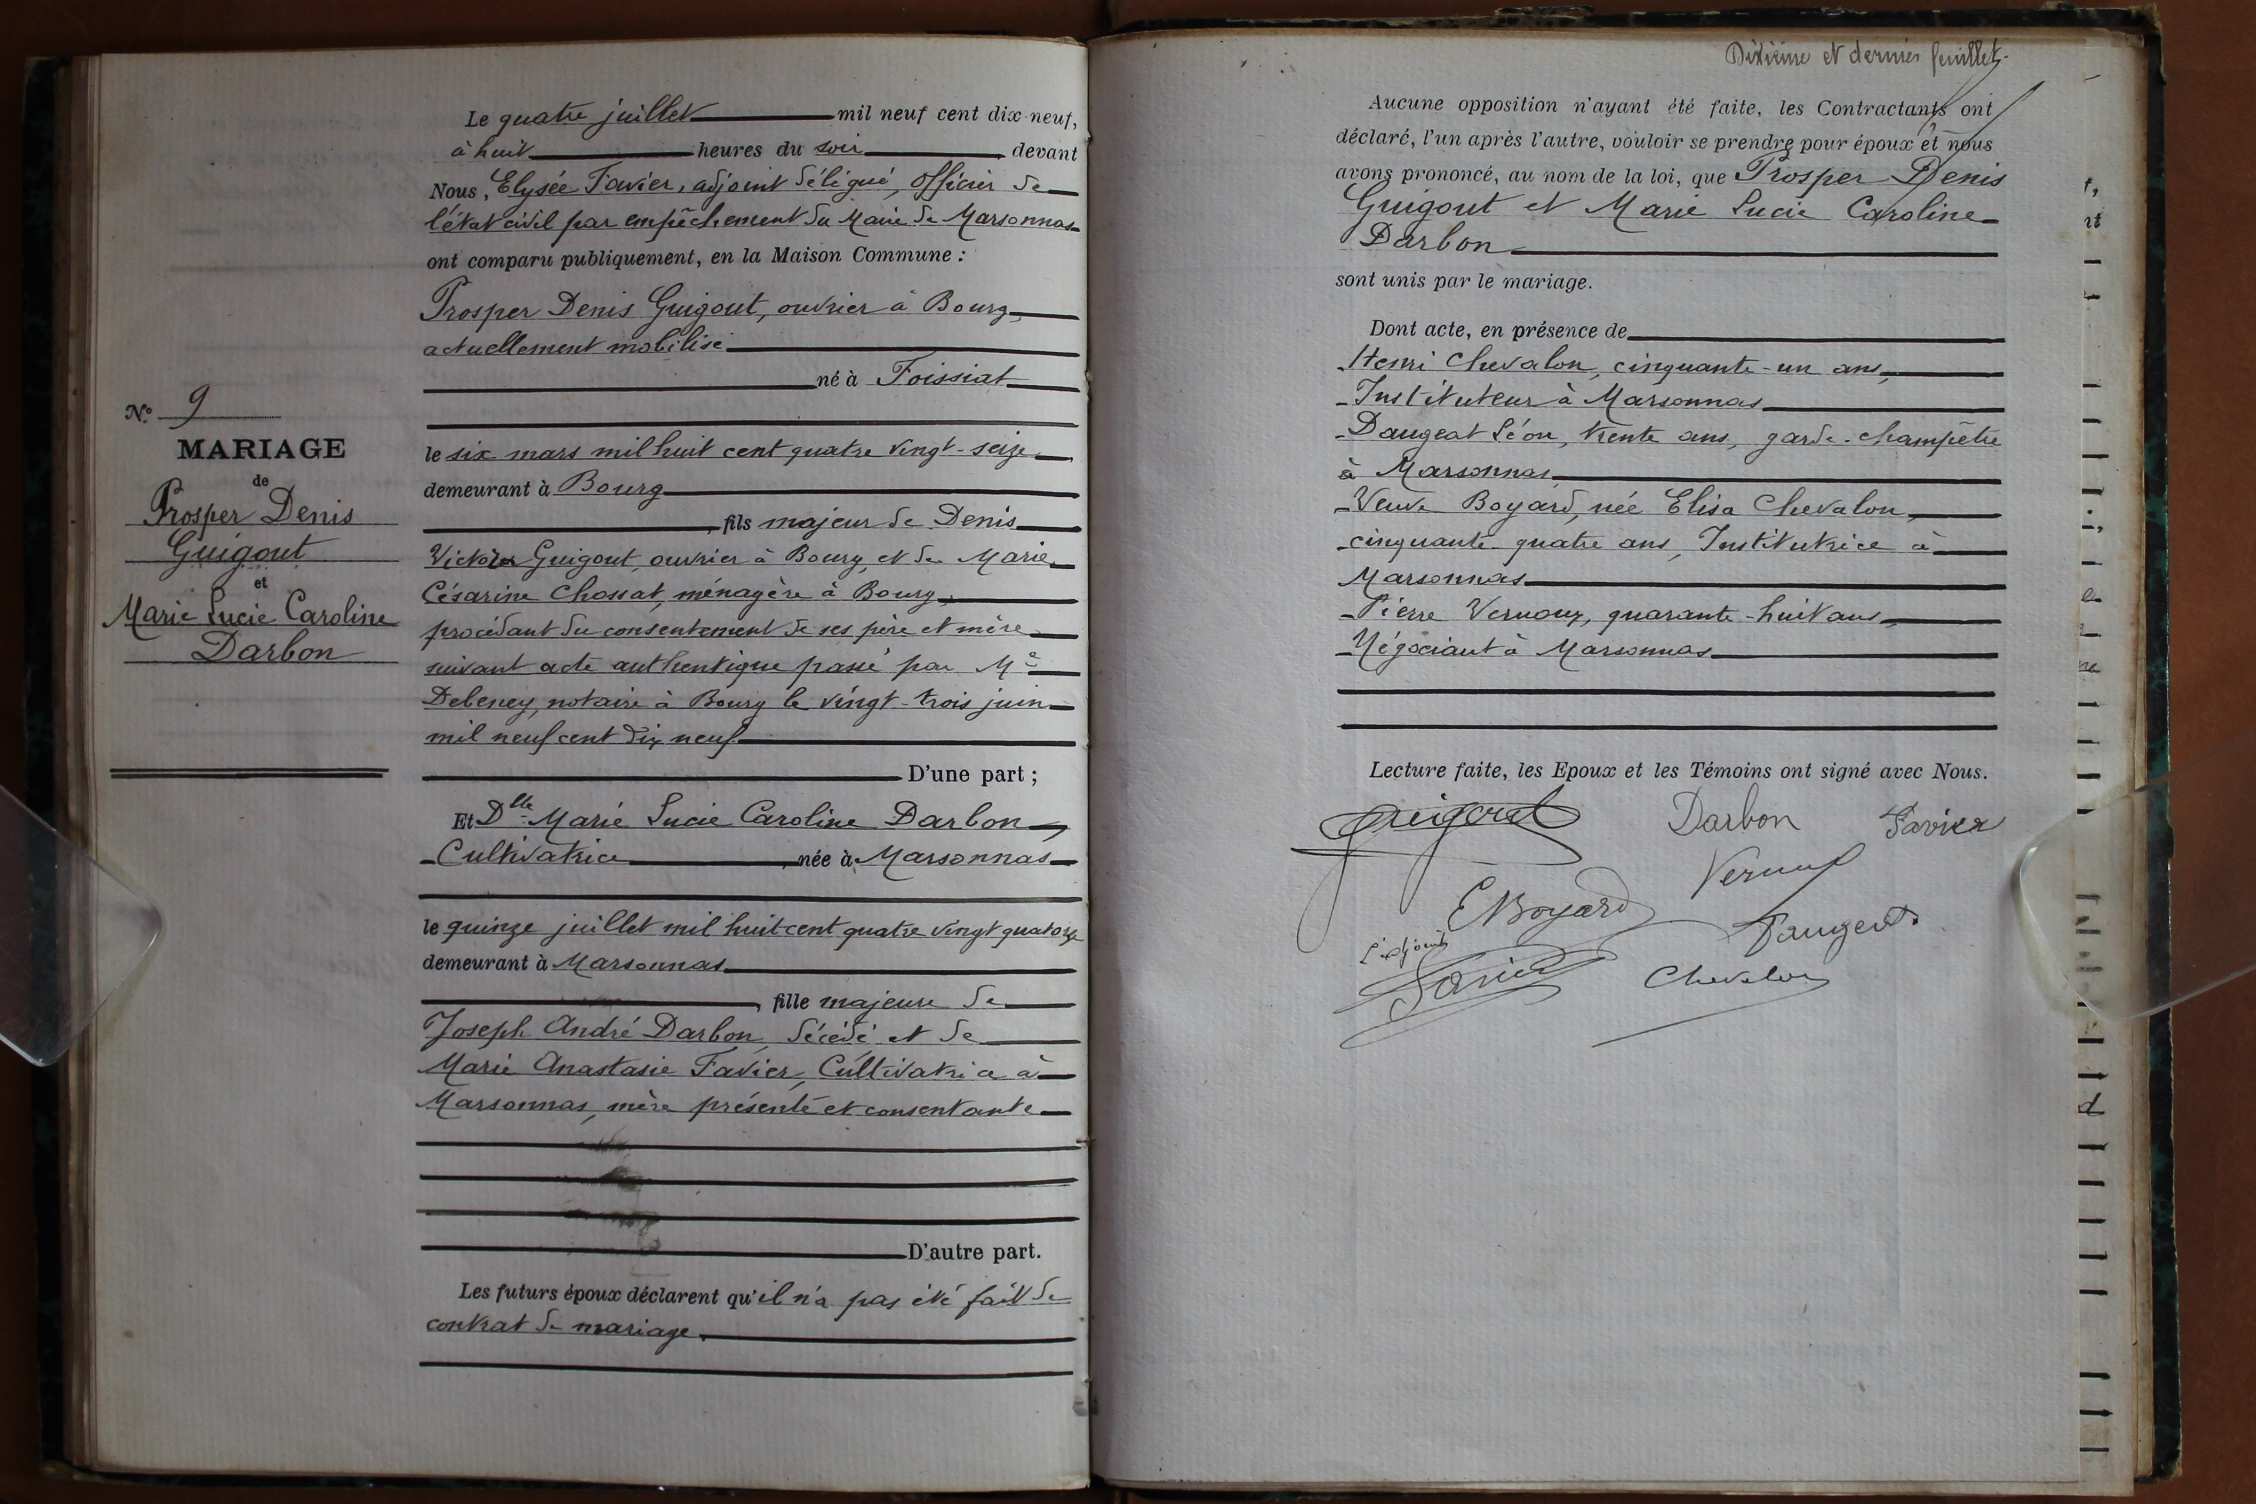 Le quatre juillet mil neuf cent dix-neuf,
à huit heures du soir devant
Nous, Elysée Favier, adjoint délégué, officier de
l'état civil par empêchement du Maire de Marsonnas
ont comparu publiquement, en la Maison Commune :
Prosper Denis Guigout, ouvrier à Bourg,
actuellement mobilisé
né à Foissiat
N° 9
MARIAGE
de
Prosper Denis
Guigout
et
Marie Lucie Caroline
Darbon
le six mars mil huit cent quatre vingt-seize
demeurant à Bourg
, fils majeur de Denis
Victor Guigout, ouvrier à Bourg, et de Marie
Césarine Chossat, ménagère à Bourg,
procédant du consentement de ses père et mère
suivant acte authentique passé par Me
Debeney, notaire à Bourg le vingt-trois juin
mil neuf cent dix neuf
D'une part ;
Et Dlle Marie Lucie Caroline Darbon,
Cultivatrice, née à Marsonnas
le quinze juillet mil huit cent quatre vingt quatorze
demeurant à Marsonnas
, fille majeure de
Joseph André Darbon, décédé et de
Marie Anastasie Favier, Cultivatrice à
Marsonnas, mère présente et consentante
D'autre part.
Les futurs époux déclarent qu'il n'a pas été fait de
contrat de mariage.
Dixième et dernier feuillet.
Aucune opposition n'ayant été faite, les Contractants ont
déclaré, l'un après l'autre, vouloir se prendre pour époux et nous
avons prononcé, au nom de la loi, que Prosper Denis
Guigout et Marie Lucie Caroline
Darbon
sont unis par le mariage.
Dont acte, en présence de
Henri Chevalon, cinquante-un ans,
Instituteur à Marsonnas
Daugeat Léon, trente ans, garde-champêtre
à Marsonnas
Veuve Boyard, née Elisa Chevalon,
cinquante-quatre ans, Institutrice à
Marsonnas
Pierre Vernoux, quarante-huit ans,
Négociant à Marsonnas
Lecture faite, les Epoux et les Témoins ont signé avec Nous.
Guigout Darbon Favier
Vernoux
E Boyard
Daugeat
L'adjoint
Favier Chevalon